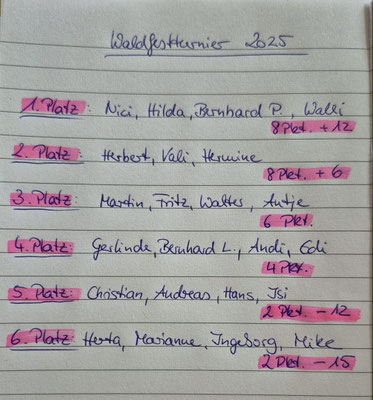 Waldfestturnier 2025
1. Platz: Nici, Hilda, Bernhard P., Walli
8 Pkt. + 12
2. Platz: Herbert, Vali, Hermine
8 Pkt. + 6
3. Platz: Martin, Fritz, Walter, Antje
6 Pkt.
4. Platz: Gerlinde, Bernhard L., Andi, Edi
4 Pkt.
5. Platz: Christian, Andreas, Hans, Isi
2 Pkt. - 12
6. Platz: Herta, Marianne, Ingeborg, Mike
2 Pkt. - 15